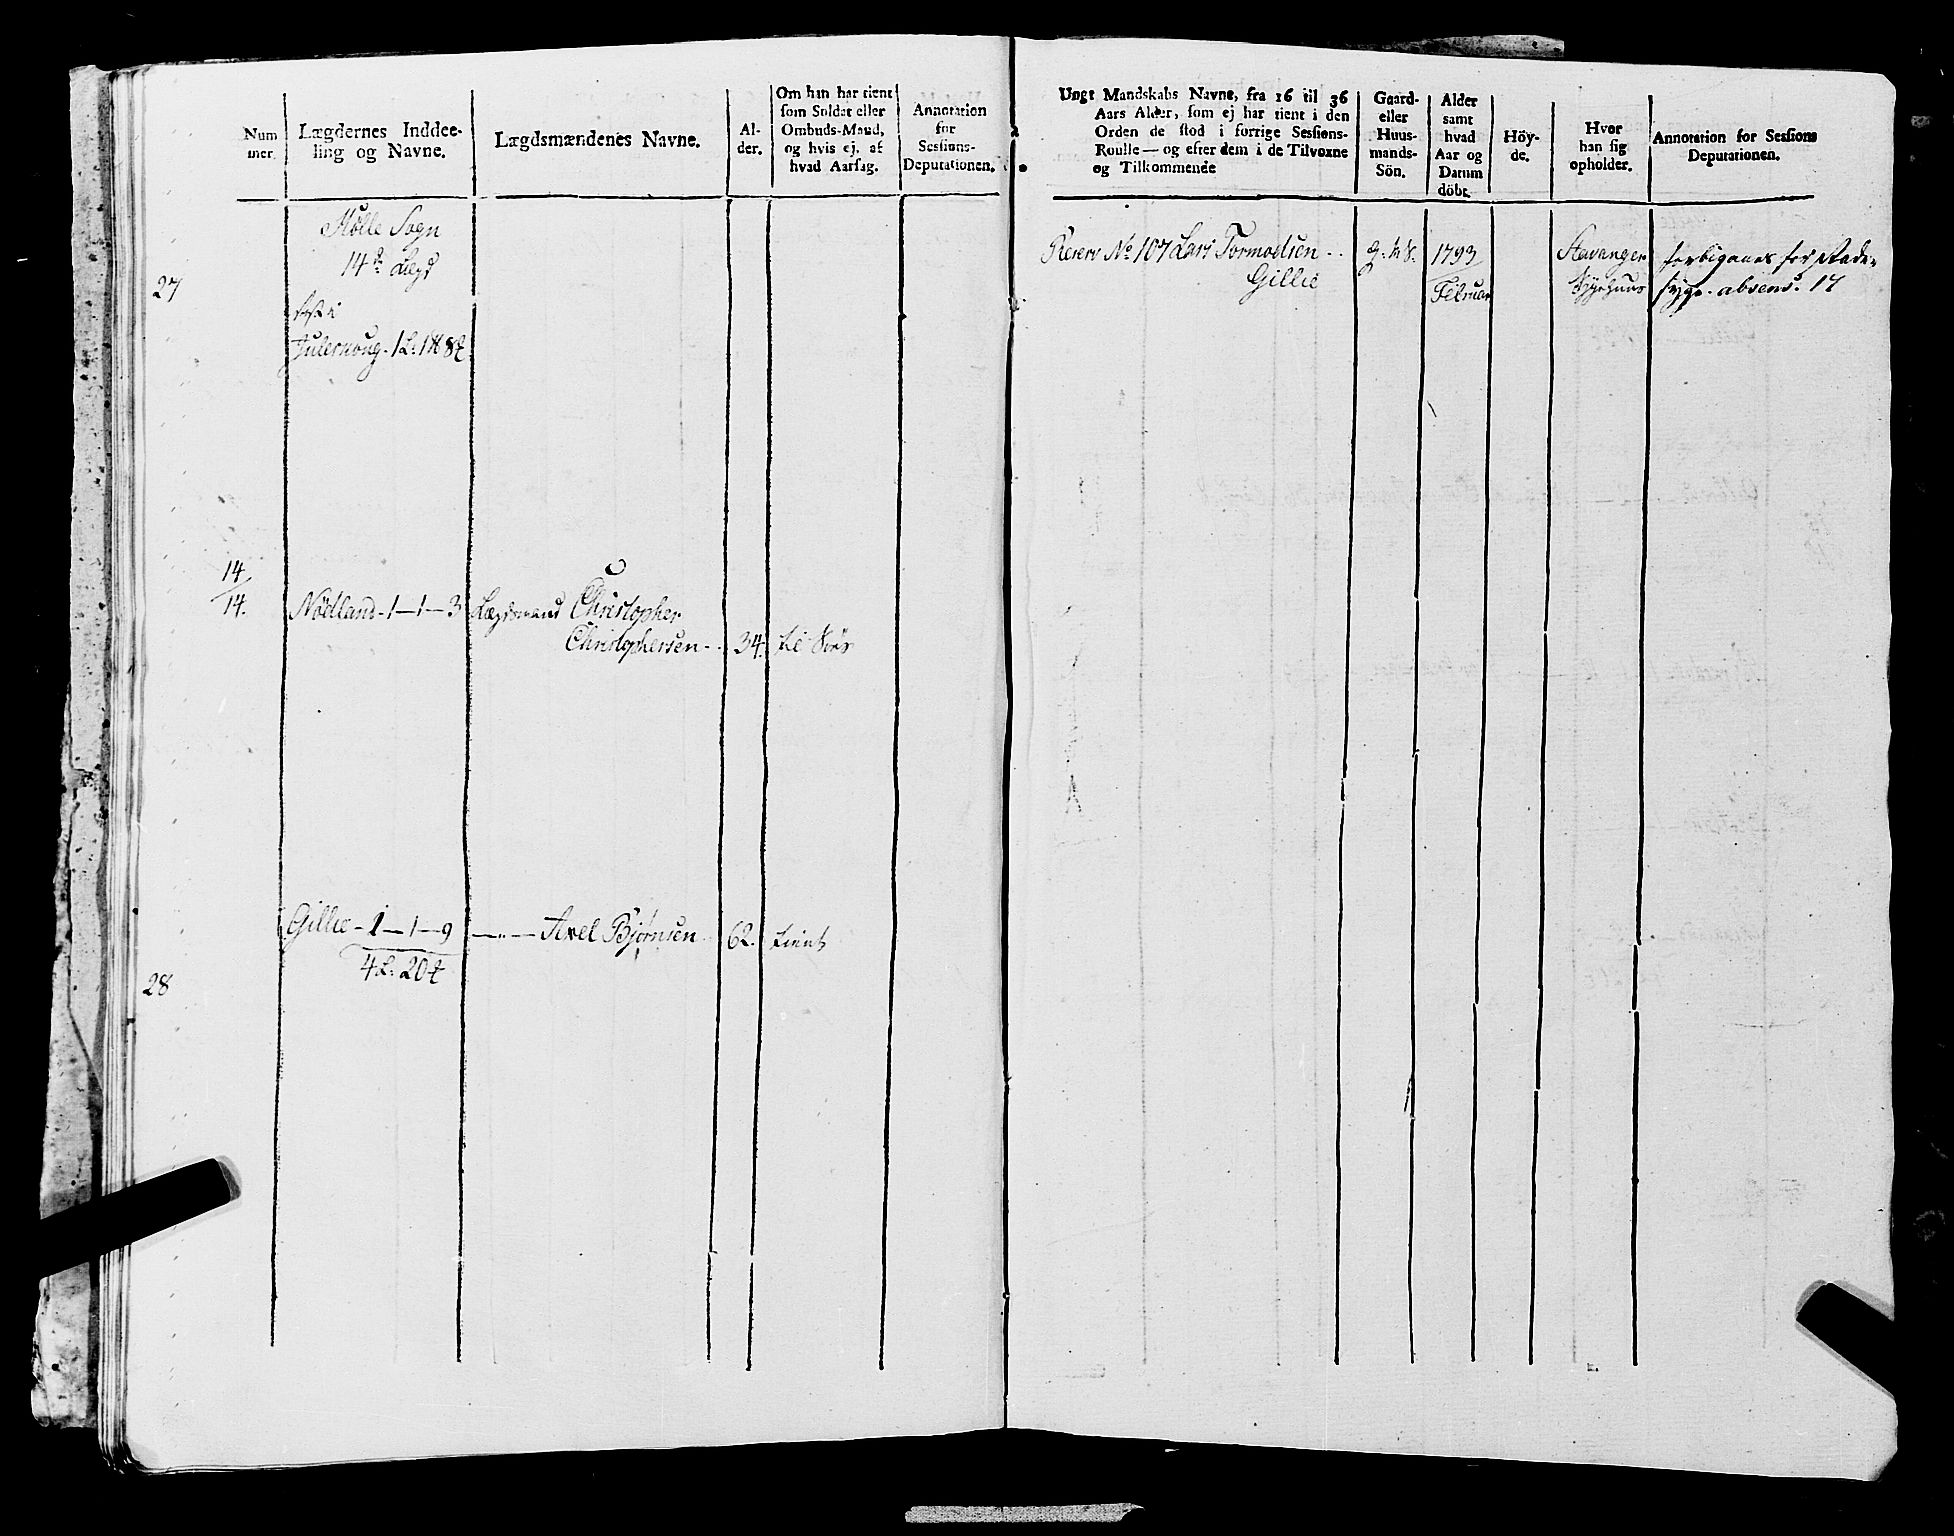 Num
mer.
Lægdernes Inddee-
ling og Navne.
Lægdsmændenes Navne.
Al-
der.
Om han har tient
som Soldat eller
Ombuds-Mand,
og hvis ej, af
hvad Aarsag.
Annotation
for
Sessions-
Deputationen.
27
Hølle Sogn
14de Lægd
1 L. 1 H 8 t
14
14.
Nödland - 1 - 1 - 3
Lægdsmand Christopher
Christophersen - .
34.
Gillie - 1 - 1 - 9
- " - Axel Bjørnsen
62.
tient
4 L. 20 t
28
Ungt Mandskabs Navne, fra 16 til 36
Aars Alder, som ej har tient i den
Orden de stod i forrige Sessions-
Roulle — og efter dem i de Tilvoxne
og Tilkommende
Gaard-
eller
Huus-
mands-
Sön.
Alder
samt
hvad
Aar og
Datum
döbt.
Höy-
de.
Hvor
han sig
opholder.
Annotation for Sessions
Deputationen.
Reserv No 107 Lars Tormodsen . .
Gillie
1793
Februar
Stavanger
Sygehuus
forbigaaes for Rade-
syge. absens. 17